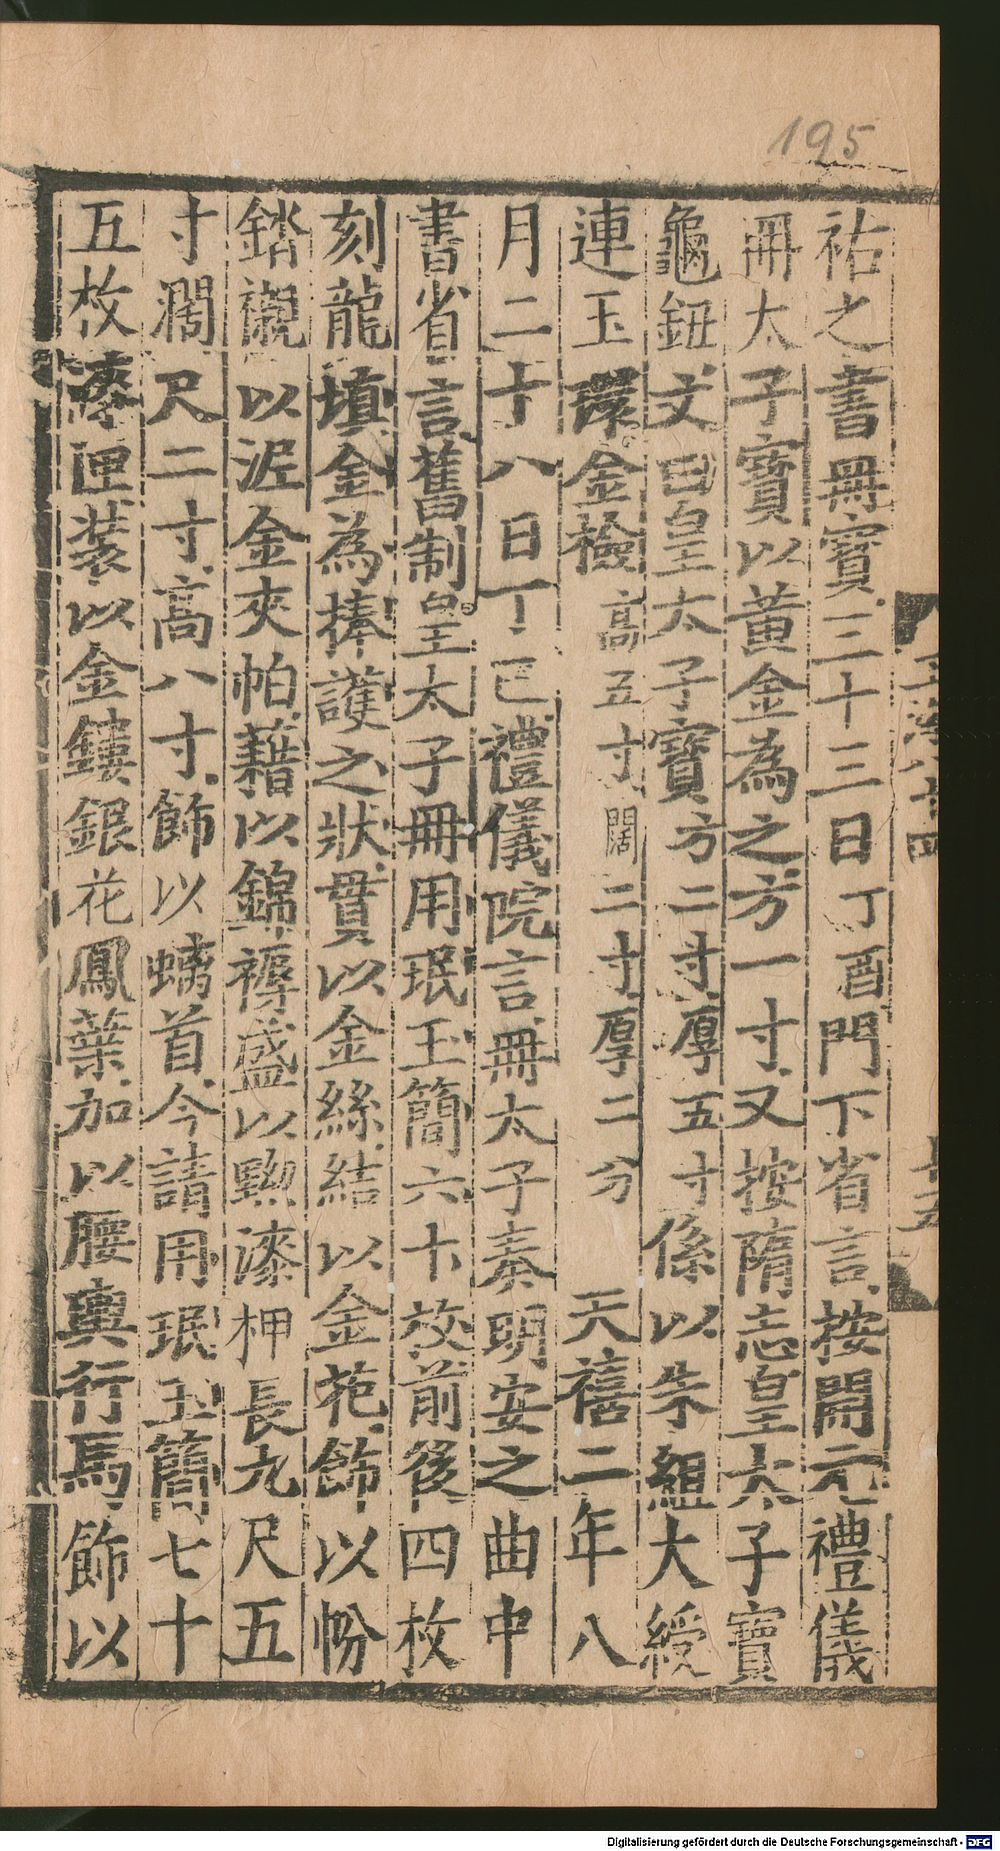 195
祐之書冊寳三十三日丁酉門下省言按開元禮儀
冊太子寳以黃金為之方一寸又按隋志皇太子寳
龜鈕文曰皇太子寳方二寸厚五寸係以朱組大綬
連玉環金檢高五寸闊二寸厚二分 天禧二年八
月二十八日丁巳禮儀院言冊太子奏明安之曲中
書省言舊制皇太子冊用珉玉簡六十枚前後四枚
刻龍填金為捧護之狀貫以金絲結以金花飾以帉
錔襯以泥金夾帕藉以錦褥盛以黝漆柙長九尺五
寸濶尺二寸高八寸飾以螭首今請用珉玉簡七十
五枚漆匣装以金鏤銀花鳳葉加以腰輿行馬飾以
Digitalisierung gefördert durch die Deutsche Forschungsgemeinschaft - DFG